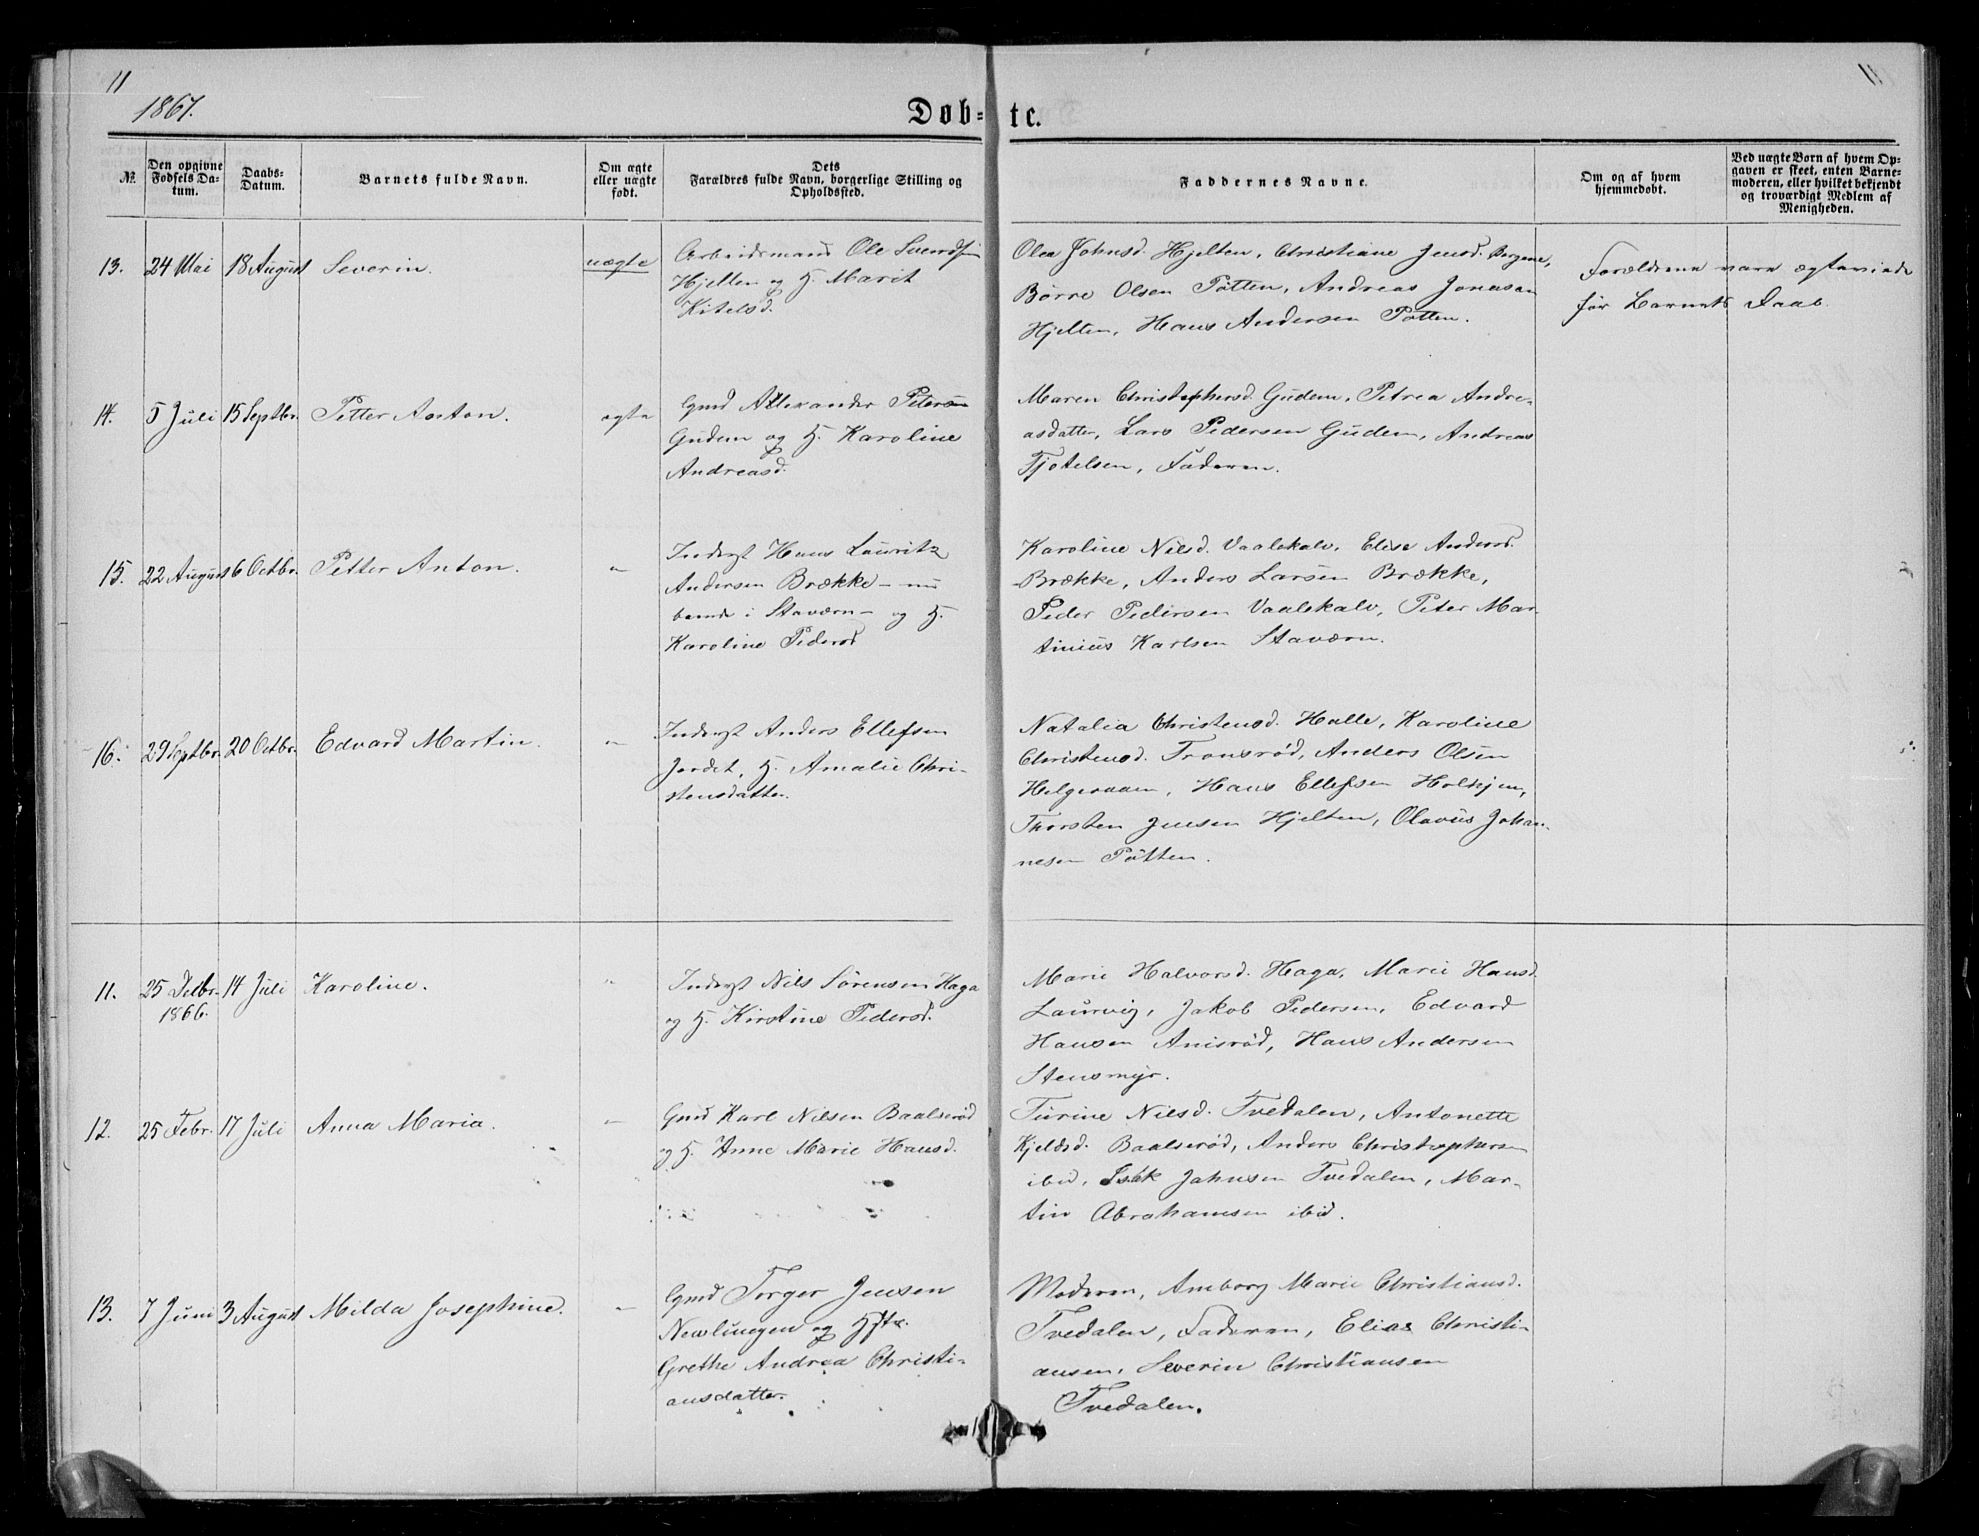 11
1867.
Døb-
te.
11
№
Den opgivne Fødsels Da-tum.
Daabs-Datum.
Barnets fulde Navn.
Om ægte eller uægte født.
Dets Forældres fulde Navn, borgerlige Stilling og Opholdssted.
Faddernes Navne.
Om og af hvem hjemmedøbt.
Ved uægte Børn af hvem Op-gaven er skeet, enten Barne-moderen, eller hvilket bekjendt og troværdigt Medlem af Menigheden.
13. 24 Mai 18 August Severin. uægte
Arbeidsmand Ole Svendsen
Hjelten og H. Marit
Kitelsd.
Olea Johnsd. Hjelten, Christiane Jensd. Bergene,
Børre Olsen Pøtten, Andreas Jonasen
Hjelten, Hans Andersen Pøtten.
Forældrene vare ægteviede
før Barnets Daab.
14. 5 Juli 15 Septbr. Petter Anton. ægte
Gmd Alexander Petersen
Gudem og H. Karoline
Andreasd.
Maren Christophersd. Gudem, Petrea Andre-
asdatter, Lars Pedersen Gudem, Andreas
Tjøtelsen, Faderen.
15. 22 August 6 Octbr. Petter Anton. "
Inderst Hans Lauritz
Andersen Brække - nu
boende i Staværn - og H.
Karoline Pedersd
Karoline Nilsd. Vaalekalv, Elise Andersd.
Brække, Anders Larsen Brække,
Peder Pedersen Vaalekalv, Peter Mar
tinius Karlsen Staværn.
16. 29 Septbr. 20 Octbr. Edvard Martin. "
Inderst Anders Ellefsen
Jordet, H. Amalie Chri-
stensdatter.
Natalia Christensd. Halle, Karoline
Christensd. Tronsrød, Anders Olsen
Helgeraaen, Hans Ellefsen Holhjem,
Thorsten Jensen Hjelten, Olavus Johan-
nesen Pøtten.
11. 25 Decbr. 14 Juli Karoline. "
1866.
Inderst Nils Sørensen Haga
og H. Kirstine Pedersd.
Marie Halvorsd. Haga, Marie Hansd.
Laurvig, Jakob Pedersen, Edvard
Hansen Anisrød, Hans Andersen
Stensmyr.
12. 25 Febr. 17 Juli Anna Maria. "
Gmd Karl Nilsen Baalsrød
og H. Anne Marie Hansd.
Turine Nilsd. Tvedalen, Antonette
Kjeldsd. Baalserød, Anders Christophersen
ibid, Isak Johnsen Tvedalen, Mar-
tin Abrahamsen ibid.
13. 7 Juni 3 August Milda Josephine. "
Gmd Torger Jensen
Nevlungen og Hstr.
Grethe Andrea Christi-
ansdatter.
Moderen, Amborg Marie Christiansd.
Tvedalen, Faderen, Elias Christi-
ansen, Severin Christiansen
Tvedalen.